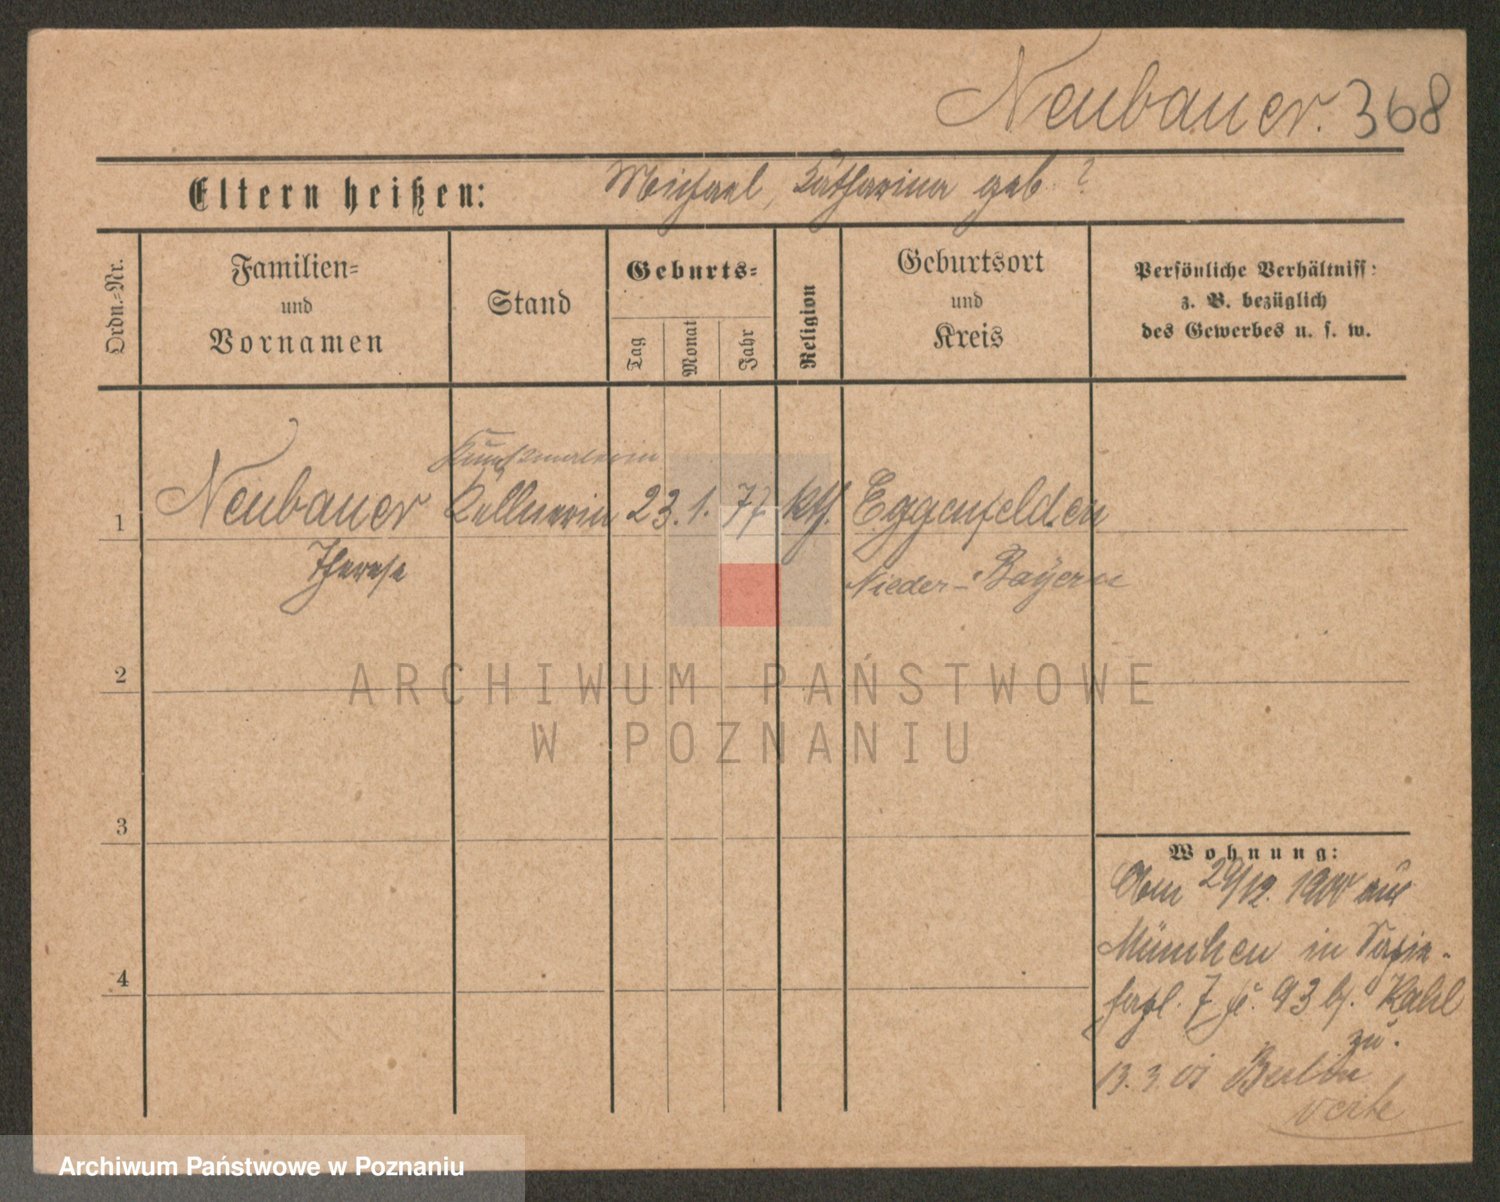 Neubauer. 368
Eltern heißen: Michael, Katharina geb. ?
Ordn.-Nr.
Familien-
und
Vornamen
Stand
Geburts-
Tag
Monat
Jahr
Religion
Geburtsort
und
Kreis
Persönliche Verhältniss:
z. B. bezüglich
des Gewerbes u. s. w.
Kunstmalerin
1 Neubauer Kellnerin 23. 1. 77 kth. Eggenfelden
Therese Nieder-Bayern
2
ARCHIWUM PAŃSTWOWE
W POZNANIU
3
Wohnung:
29/12. 1900 aus
München in
7 93 b. Kahl
zu.
4
13. 3. 01 Berlin
verte
Archiwum Państwowe w Poznaniu